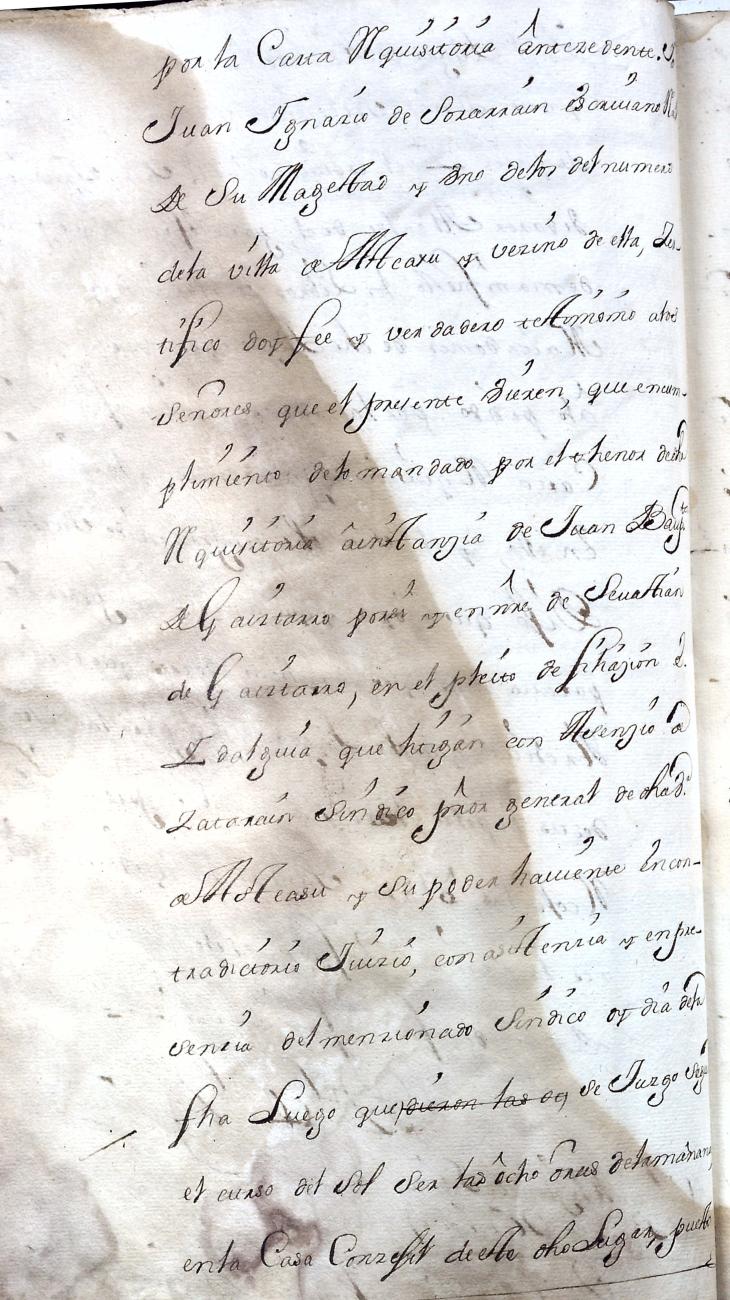 por la Carta Rquisitoria antezedente. Yo
Juan Ygnazio de Sorarrain escriuano Rl.
de Su Magestad y uno delos del numero
dela villa de Alzaga y vezino de ella, Zer-
tifico doy fee y verdadero testimonio alos
señores que el presente vieren, que encum-
plimiento delo mandado por el thenor desta
Rquisitoria âinstanzia de Juan Bapta
de Gaiztarro por si y en nre de Seuastian
de Gaiztarro, en el pleito de filiazion e
Idalguia que litigan con Asenzio de
Zatarain Sindico pror general de dha va
de y su poder hauiente encon-
tradictorio Juizio, con asistenzia y enpre-
senzia del menzionado Sindico oy dia dela
fha Luego que dieron las oc, se Juzgo segun
el curso del Sol ser las ôcho ôras dela mañana,
enla Casa Conzegil deeste dho Lugar, puesto